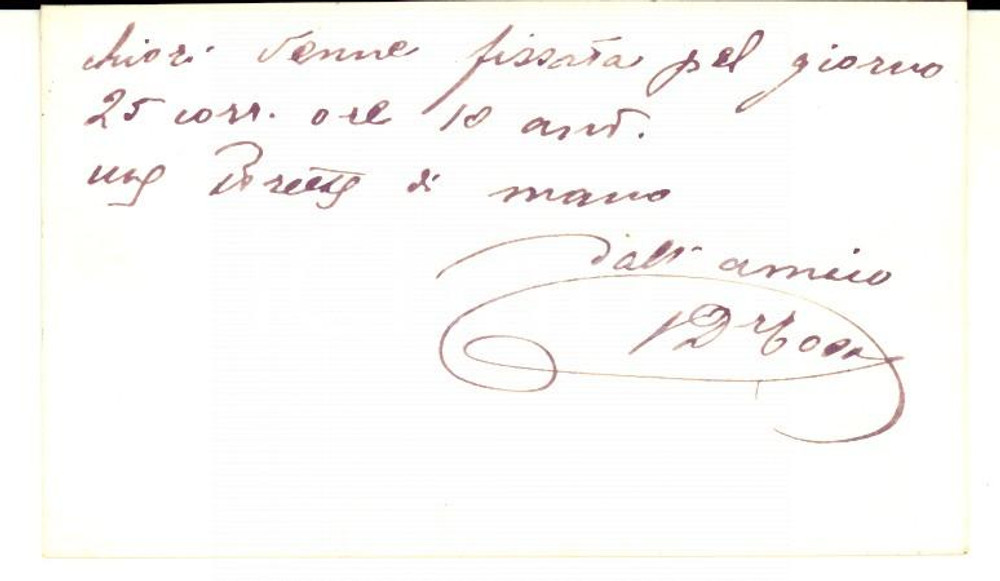 chiori venne fissata pel giorno
25 corr. ore 10 ant.
una stretta di mano
dall'amico
Dr Cosa